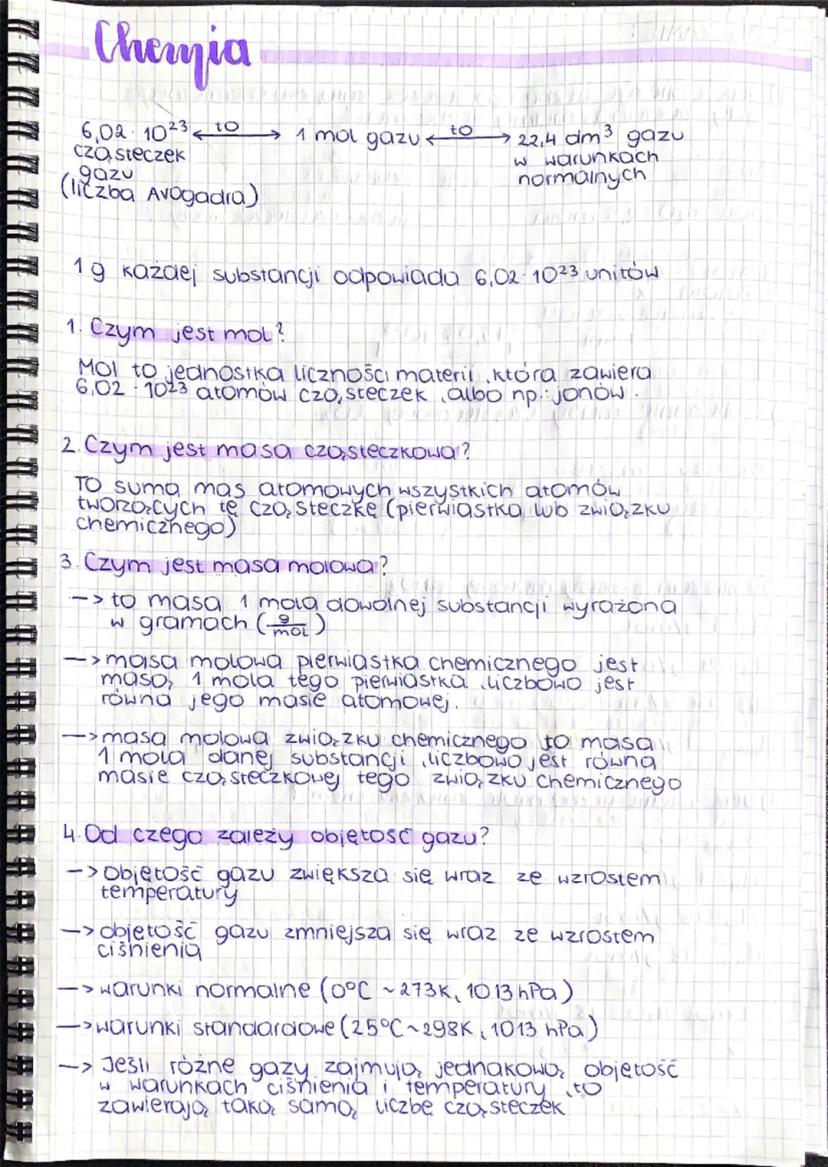 Chemia
6,02 · 10²³ ← to → 1 mol gazu ← to → 22,4 dm³ gazu
cząsteczek w warunkach
gazu normalnych
(liczba Avogadra)
1 g każdej substancji odpowiada 6,02 · 10²³ unitów
1. Czym jest mol?
Mol to jednostka liczności materii, która zawiera
6,02 · 10²³ atomów cząsteczek, albo np.: jonów.
2. Czym jest masa cząsteczkowa?
To suma mas atomowych wszystkich atomów
tworzących tę cząsteczkę (pierwiastka lub związku
chemicznego)
3. Czym jest masa molowa?
-> to masa 1 mola dowolnej substancji wyrażona
w gramach (g/mol)
-> masa molowa pierwiastka chemicznego jest
masą 1 mola tego pierwiastka, liczbowo jest
równa jego masie atomowej.
-> masa molowa związku chemicznego to masa
1 mola danej substancji, liczbowo jest równa
masie cząsteczkowej tego związku chemicznego
4. Od czego zależy objętość gazu?
-> objętość gazu zwiększa się wraz ze wzrostem
temperatury
-> objętość gazu zmniejsza się wraz ze wzrostem
ciśnienia
-> warunki normalne (0°C ~ 273K, 1013 hPa)
-> warunki standardowe (25°C ~ 298K, 1013 hPa)
-> Jeśli różne gazy zajmują jednakową objętość
w warunkach ciśnienia i temperatury, to
zawierają taką samą liczbę cząsteczek